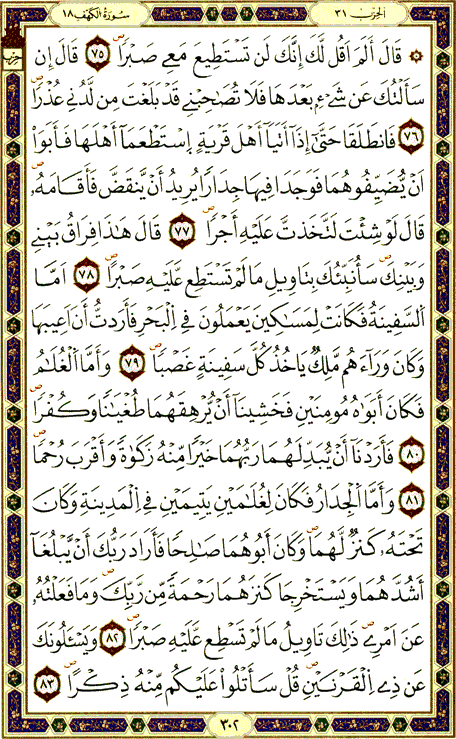 الحزب ٣١
سُورَةُ الكَهْف ١٨
حزب
۞ قَالَ أَلَمَ اَقُل لَّكَ إِنَّكَ لَن تَسْتَطِيعَ مَعِے صَبْرًا ٧٥ قَالَ إِن
سَأَلْتُكَ عَن شَےْءِۢ بَعْدَهَا فَلَا تُصَٰحِبْنِے قَدْ بَلَغْتَ مِن لَّدُنِے عُذْرًا
٧٦ فَانطَلَقَا حَتَّىٰٓ إِذَآ أَتَيَآ أَهْلَ قَرْيَةٍ اِ۪سْتَطْعَمَآ أَهْلَهَا فَأَبَوَاْ
اَنْ يُّضَيِّفُوهُمَا فَوَجَدَا فِيهَا جِدَارًا يُرِيدُ أَنْ يَّنقَضَّ فَأَقَامَهُۥ
قَالَ لَوْ شِئْتَ لَتَّخَذتَّ عَلَيْهِ أَجْرًا ٧٧ قَالَ هَٰذَا فِرَاقُ بَيْنِے
وَبَيْنِكَ سَأُنَبِّئُكَ بِتَاوِيلِ مَا لَمْ تَسْتَطِع عَّلَيْهِ صَبْرًا ٧٨ اَمَّا
اَ۬لسَّفِينَةُ فَكَانَتْ لِمَسَٰكِينَ يَعْمَلُونَ فِے اِ۬لْبَحْرِ فَأَرَدتُّ أَنَ اَعِيبَهَا
وَكَانَ وَرَآءَهُم مَّلِكٌ يَاخُذُ كُلَّ سَفِينَةٍ غَصْبًا ٧٩ وَأَمَّا اَ۬لْغُلَٰمُ
فَكَانَ أَبَوَٰهُ مُومِنَيْنِ فَخَشِينَآ أَنْ يُّرْهِقَهُمَا طُغْيَٰنًا وَكُفْرًا
٨٠ فَأَرَدْنَآ أَنْ يُّبَدِّلَهُمَا رَبُّهُمَا خَيْرًا مِّنْهُ زَكَوٰةً وَأَقْرَبَ رُحْمًا
٨١ وَأَمَّا اَ۬لْجِدَارُ فَكَانَ لِغُلَٰمَيْنِ يَتِيمَيْنِ فِے اِ۬لْمَدِينَةِ وَكَانَ
تَحْتَهُۥ كَنزٌ لَّهُمَا وَكَانَ أَبُوهُمَا صَٰلِحًا فَأَرَادَ رَبُّكَ أَنْ يَّبْلُغَآ
أَشُدَّهُمَا وَيَسْتَخْرِجَا كَنزَهُمَا رَحْمَةً مِّن رَّبِّكَ وَمَا فَعَلْتُهُۥ
عَنَ اَمْرِے ذَٰلِكَ تَاوِيلُ مَا لَمْ تَسْطِع عَّلَيْهِ صَبْرًا ٨٢ وَيَسْـَٔلُونَكَ
عَن ذِے اِ۬لْقَرْنَيْنِ قُلْ سَأَتْلُواْ عَلَيْكُم مِّنْهُ ذِكْرًا ٨٣
٣٠٢